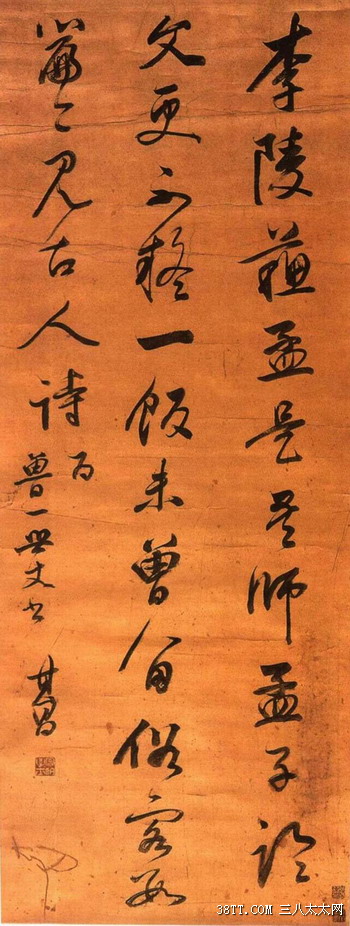 李陵蘓孟是吾師孟子論
文更不疑一飯未曾留俗客數
篇々見古人詩
為
曾一世丈書
其昌
38TT.COM 三八太太网